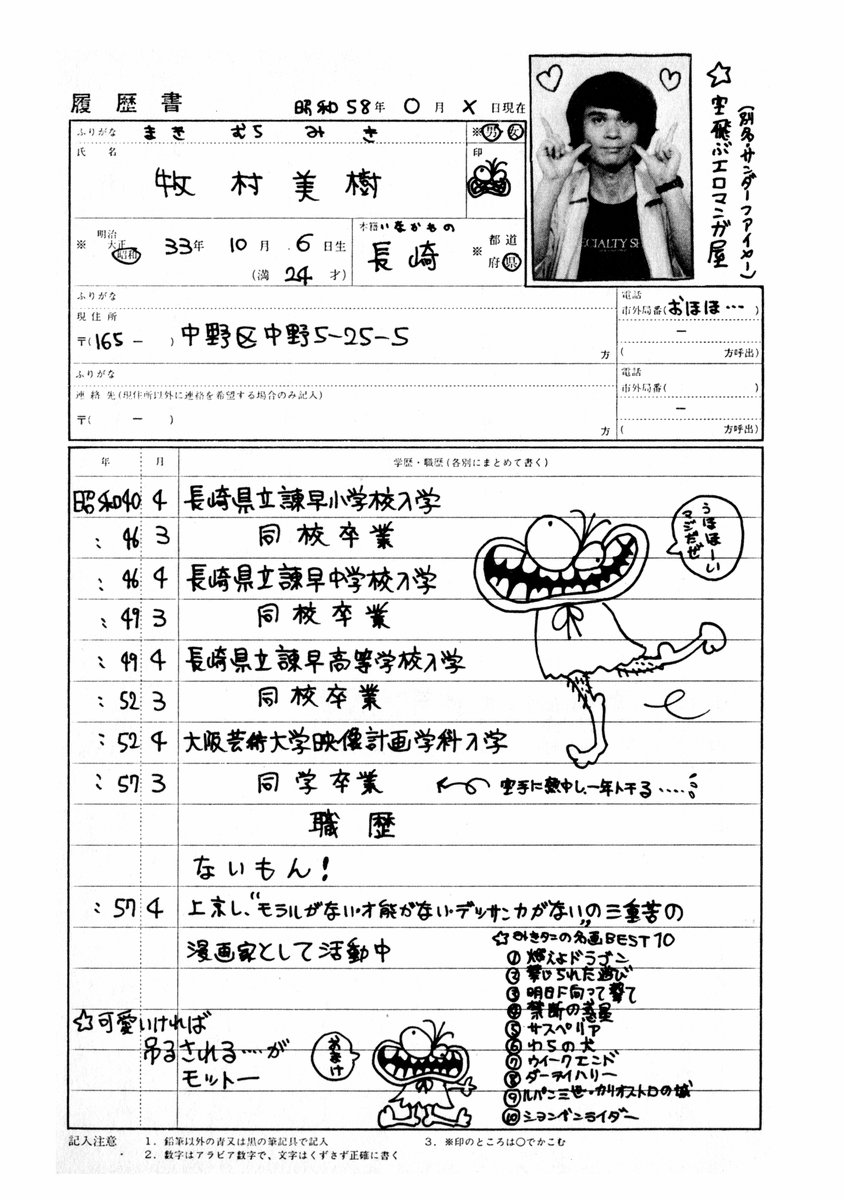 履歴書
昭和58年 〇月 ×日現在
☆空飛ぶエロマンガ屋
(別名・サンダーファイヤー)
ふりがな まき むら みき
※男女
氏名
牧村美樹
印
※ 明治 大正 昭和 33年 10月 6日生
(満 24才)
本籍 いなかもの
長崎
※ 都道府県
ECIALTY SH
ふりがな
現住所
〒(165 - ) 中野区中野5-25-5
方
電話
市外局番(おほほ…)
-
( 方呼出)
ふりがな
連絡先(現住所以外に連絡を希望する場合のみ記入)
〒( - )
方
電話
市外局番( )
-
( 方呼出)
年 月 学歴・職歴(各別にまとめて書く)
昭和40 4 長崎県立諫早小学校入学
: 46 3 同校卒業
: 46 4 長崎県立諫早中学校入学
: 49 3 同校卒業
: 49 4 長崎県立諫早高等学校入学
: 52 3 同校卒業
: 52 4 大阪芸術大学映像計画学科入学
: 57 3 同学卒業 空手に熱中し、一年トチる……
うほほーい
マジだぜ
職歴
ないもん!
: 57 4 上京し、“モラルがない・才能がない・デッサン力がない”の三重苦の
漫画家として活動中
☆みきタニの名画BEST10
① 燃えよドラゴン
② 禁じられた遊び
③ 明日に向って撃て
④ 禁断の惑星
⑤ サスペリア
⑥ わらの犬
⑦ ウイークエンド
⑧ ダーティハリー
⑨ ルパン三世・カリオストロの城
⑩ シヨンベンライダー
☆可愛いければ
吊るされる…が
モットー
おまけ
記入注意 1. 鉛筆以外の青又は黒の筆記具で記入 3. ※印のところは〇でかこむ
2. 数字はアラビア数字で、文字はくずさず正確に書く